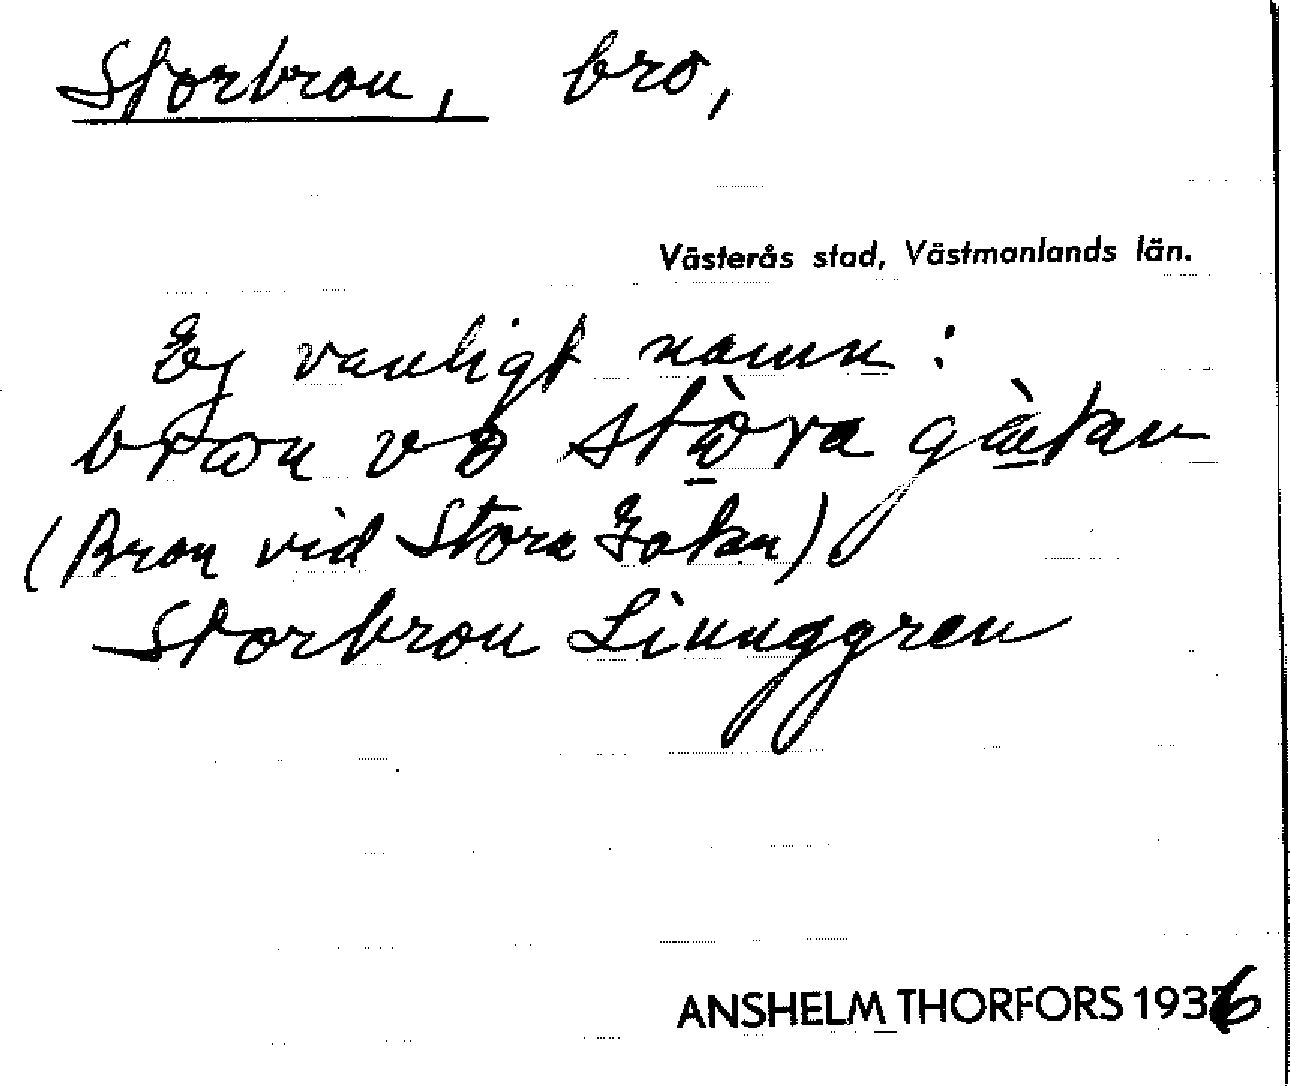 Storbron, bro,
Västerås stad, Västmanlands län.
Ej vanligt namn:
bron vö stòra gàtan
(Bron vid Stora Gatan)
Storbron Linnggren
ANSHELM THORFORS 1936